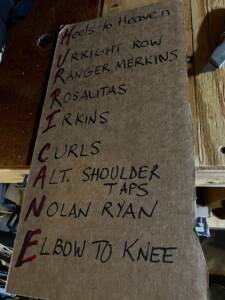 Heels to Heaven
URRIGHT ROW
RANGER MERKINS
ROSALITAS
IRKINS
CURLS
ALT. SHOULDER
TAPS
NOLAN RYAN
ELBOW TO KNEE